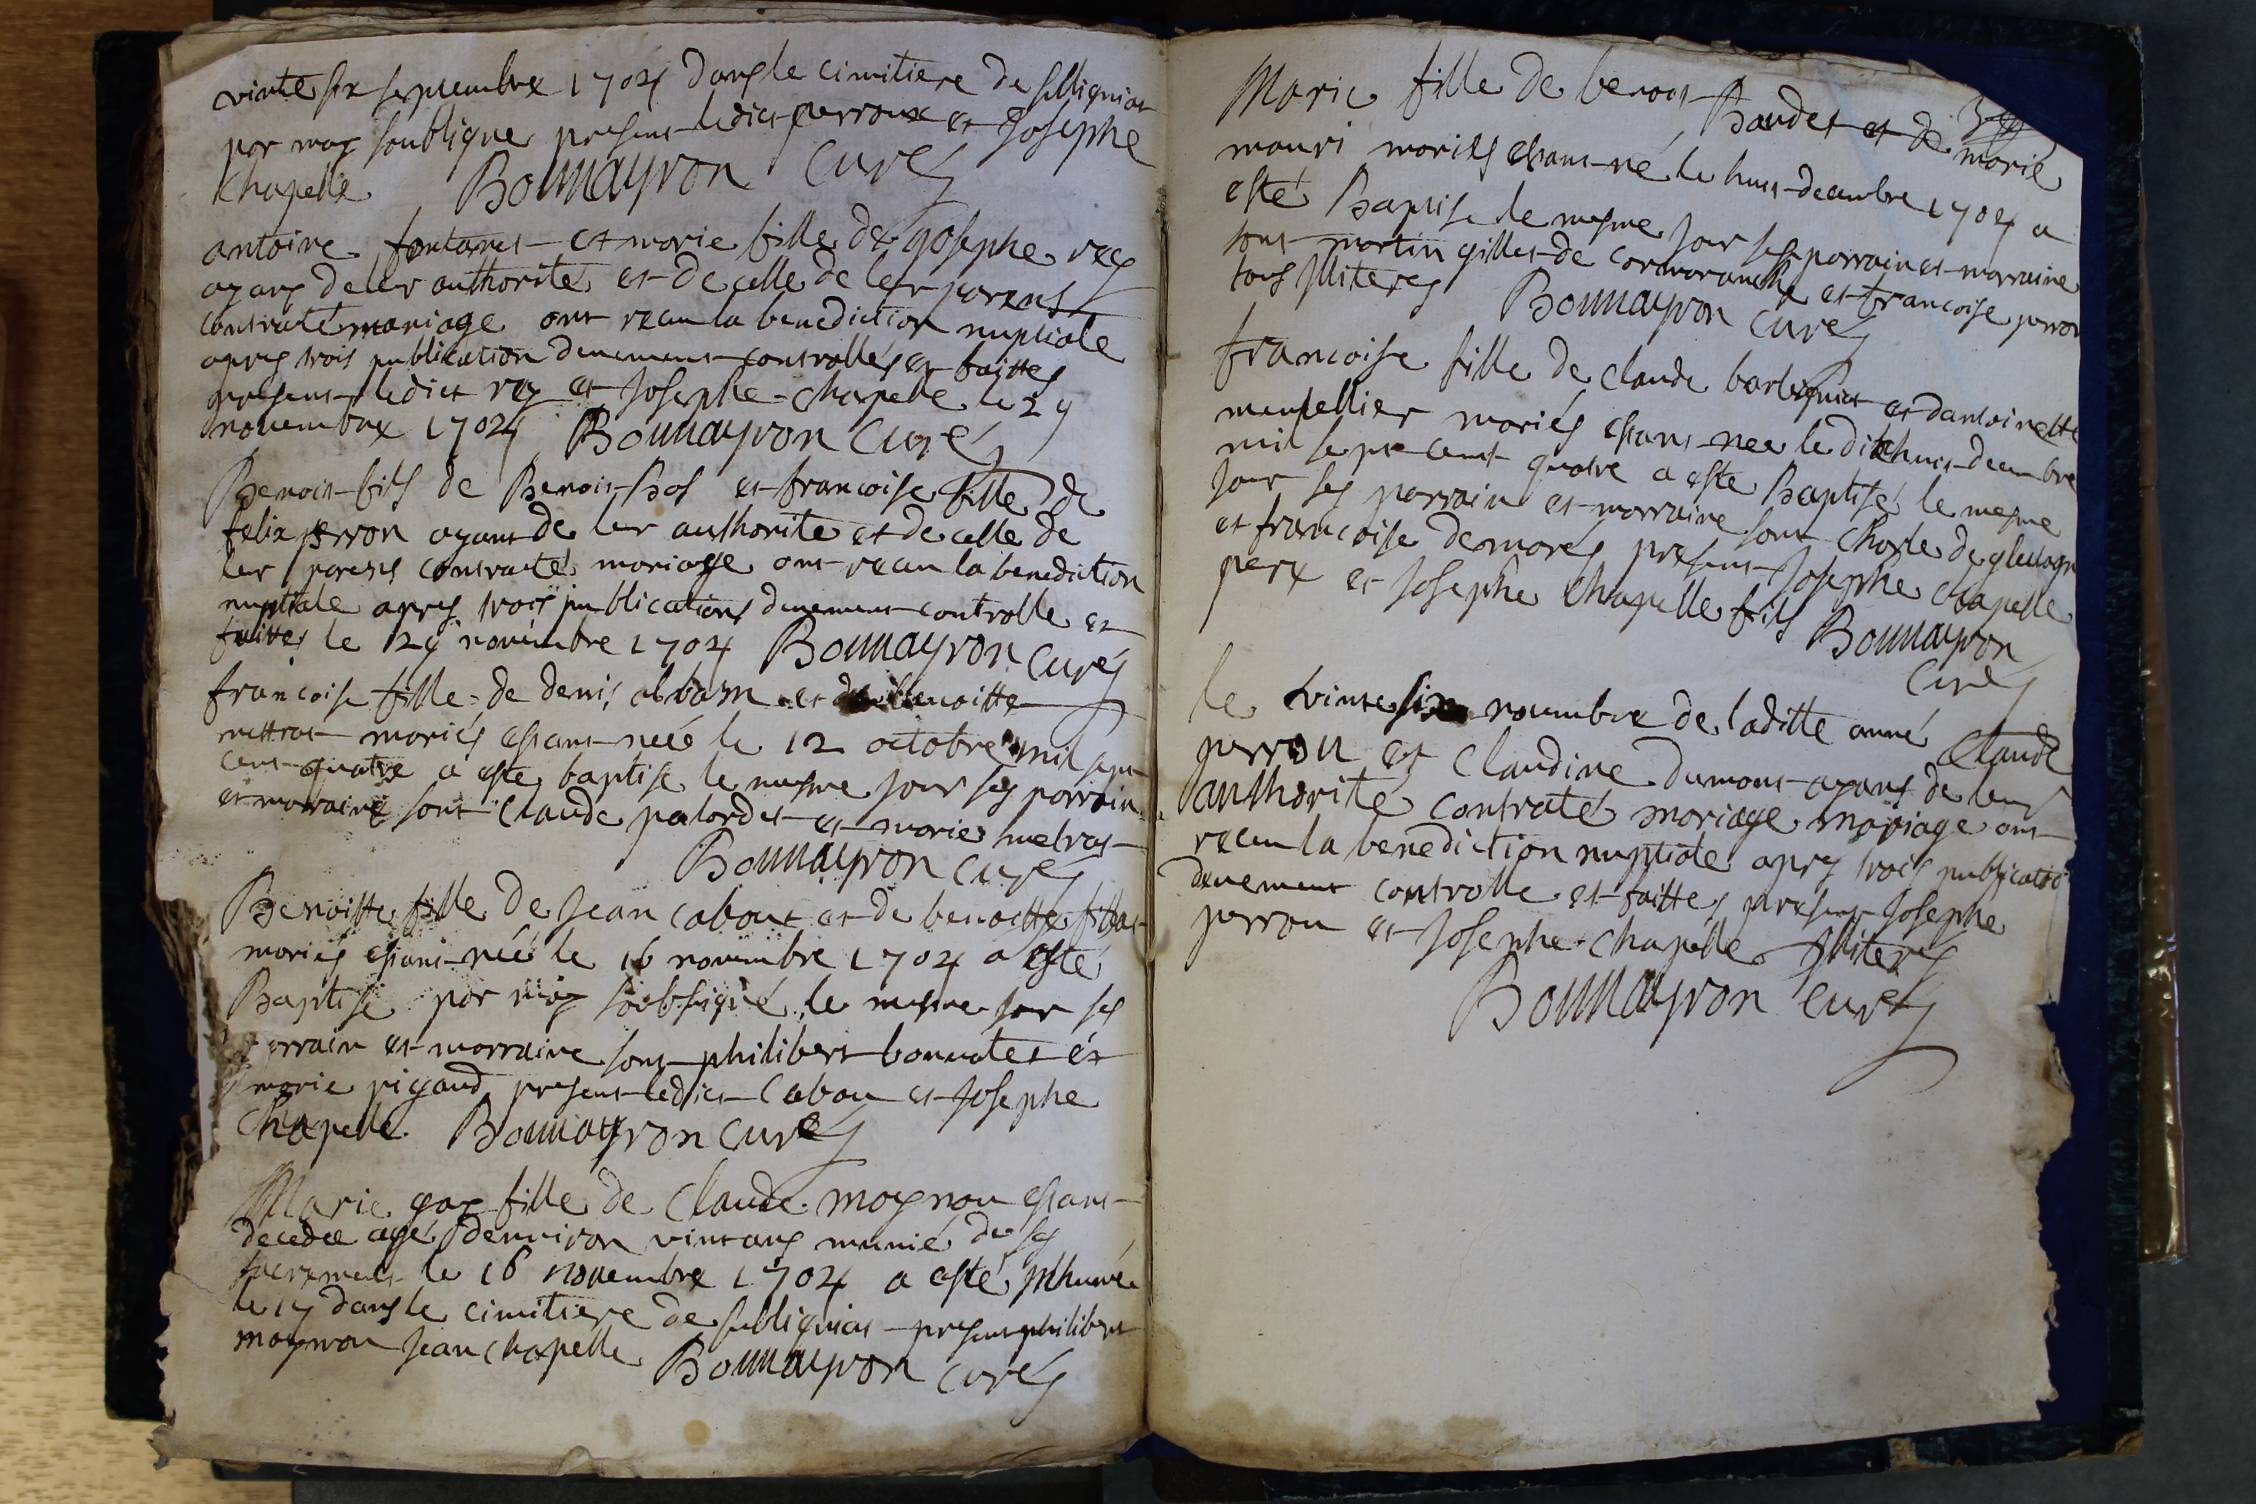 vinte six septembre 1704 dans le cimitiere de
par moy soubsigne present ledict perroux et Josephe
Chapelle Bonnayron Curé
antoine fontanet et marie fille de Josephe rey
ayans de leur authorité et de celle de leur parens
contraté mariage ont receu la benediction nuptiale
apres trois publication deuement controllés et faittes
present ledict rey et Josephe Chapelle le 29
novembre 1704 Bonnayron Curé
Benoit fils de Benoit Bos et francoise fille de
felix perron ayant de leur authorite et de celle de
leur parens contracté mariage ont receu la benediction
nuptiale apres trois publications deuement controlle et
faittes le 29 novembre 1704 Bonnayron Curé
francoise fille de denis alban et de benoitte
mettras mariés estant neé le 12 octobre mil sept
cent quatre a este baptise le mesme jour ses parrain
et marraine sont Claude palordet et marie metras
Bonnayron Curé
Benoitte fille de Jean Cabout et de benoitte
mariés estant neé le 16 novembre 1704 a esté
Baptise par moy soubsigné le mesme jour ses
parrain et marraine sont philibert bonnatet et
marie rigaud present ledict Cabou et Josephe
Chapelle Bonnayron Curé
Marie gay fille de Claude moynon estant
decedee agé denviron vint ans munié de ses
sacrements le 16 novembre 1704 a esté inhumé
le 17 dans le cimitiere de present philibert
moynon Jean Chapelle Bonnayron Curé
Marie fille de benoit Baudet et de marie
mauri mariés estant né le huit decembre 1704 a
esté Baptise le mesme jour ses parrain et marraine
sont martin gillet de cormoranche et francoise perron
tous illiteres Bonnayron Curé
francoise fille de claude et dantoinette
mariés estant neé le dixhuit decembre
mil sept cent quatre a esté Baptisé le mesme
jour ses parrain et marraine sont Charle de
et francoise demarés present Josephe Chapelle
pere et Josephe Chapelle fils Bonnayron
Curé
le vinte six novembre de laditte anné Claude
perron et Claudine dumont ayans de leur
authorité contraté mariage mariage ont
receu la benediction nuptiale apres trois publicatio
deuement controlle et faittes present Josephe
perron et Josephe Chapelle illiteres
Bonnayron Curé